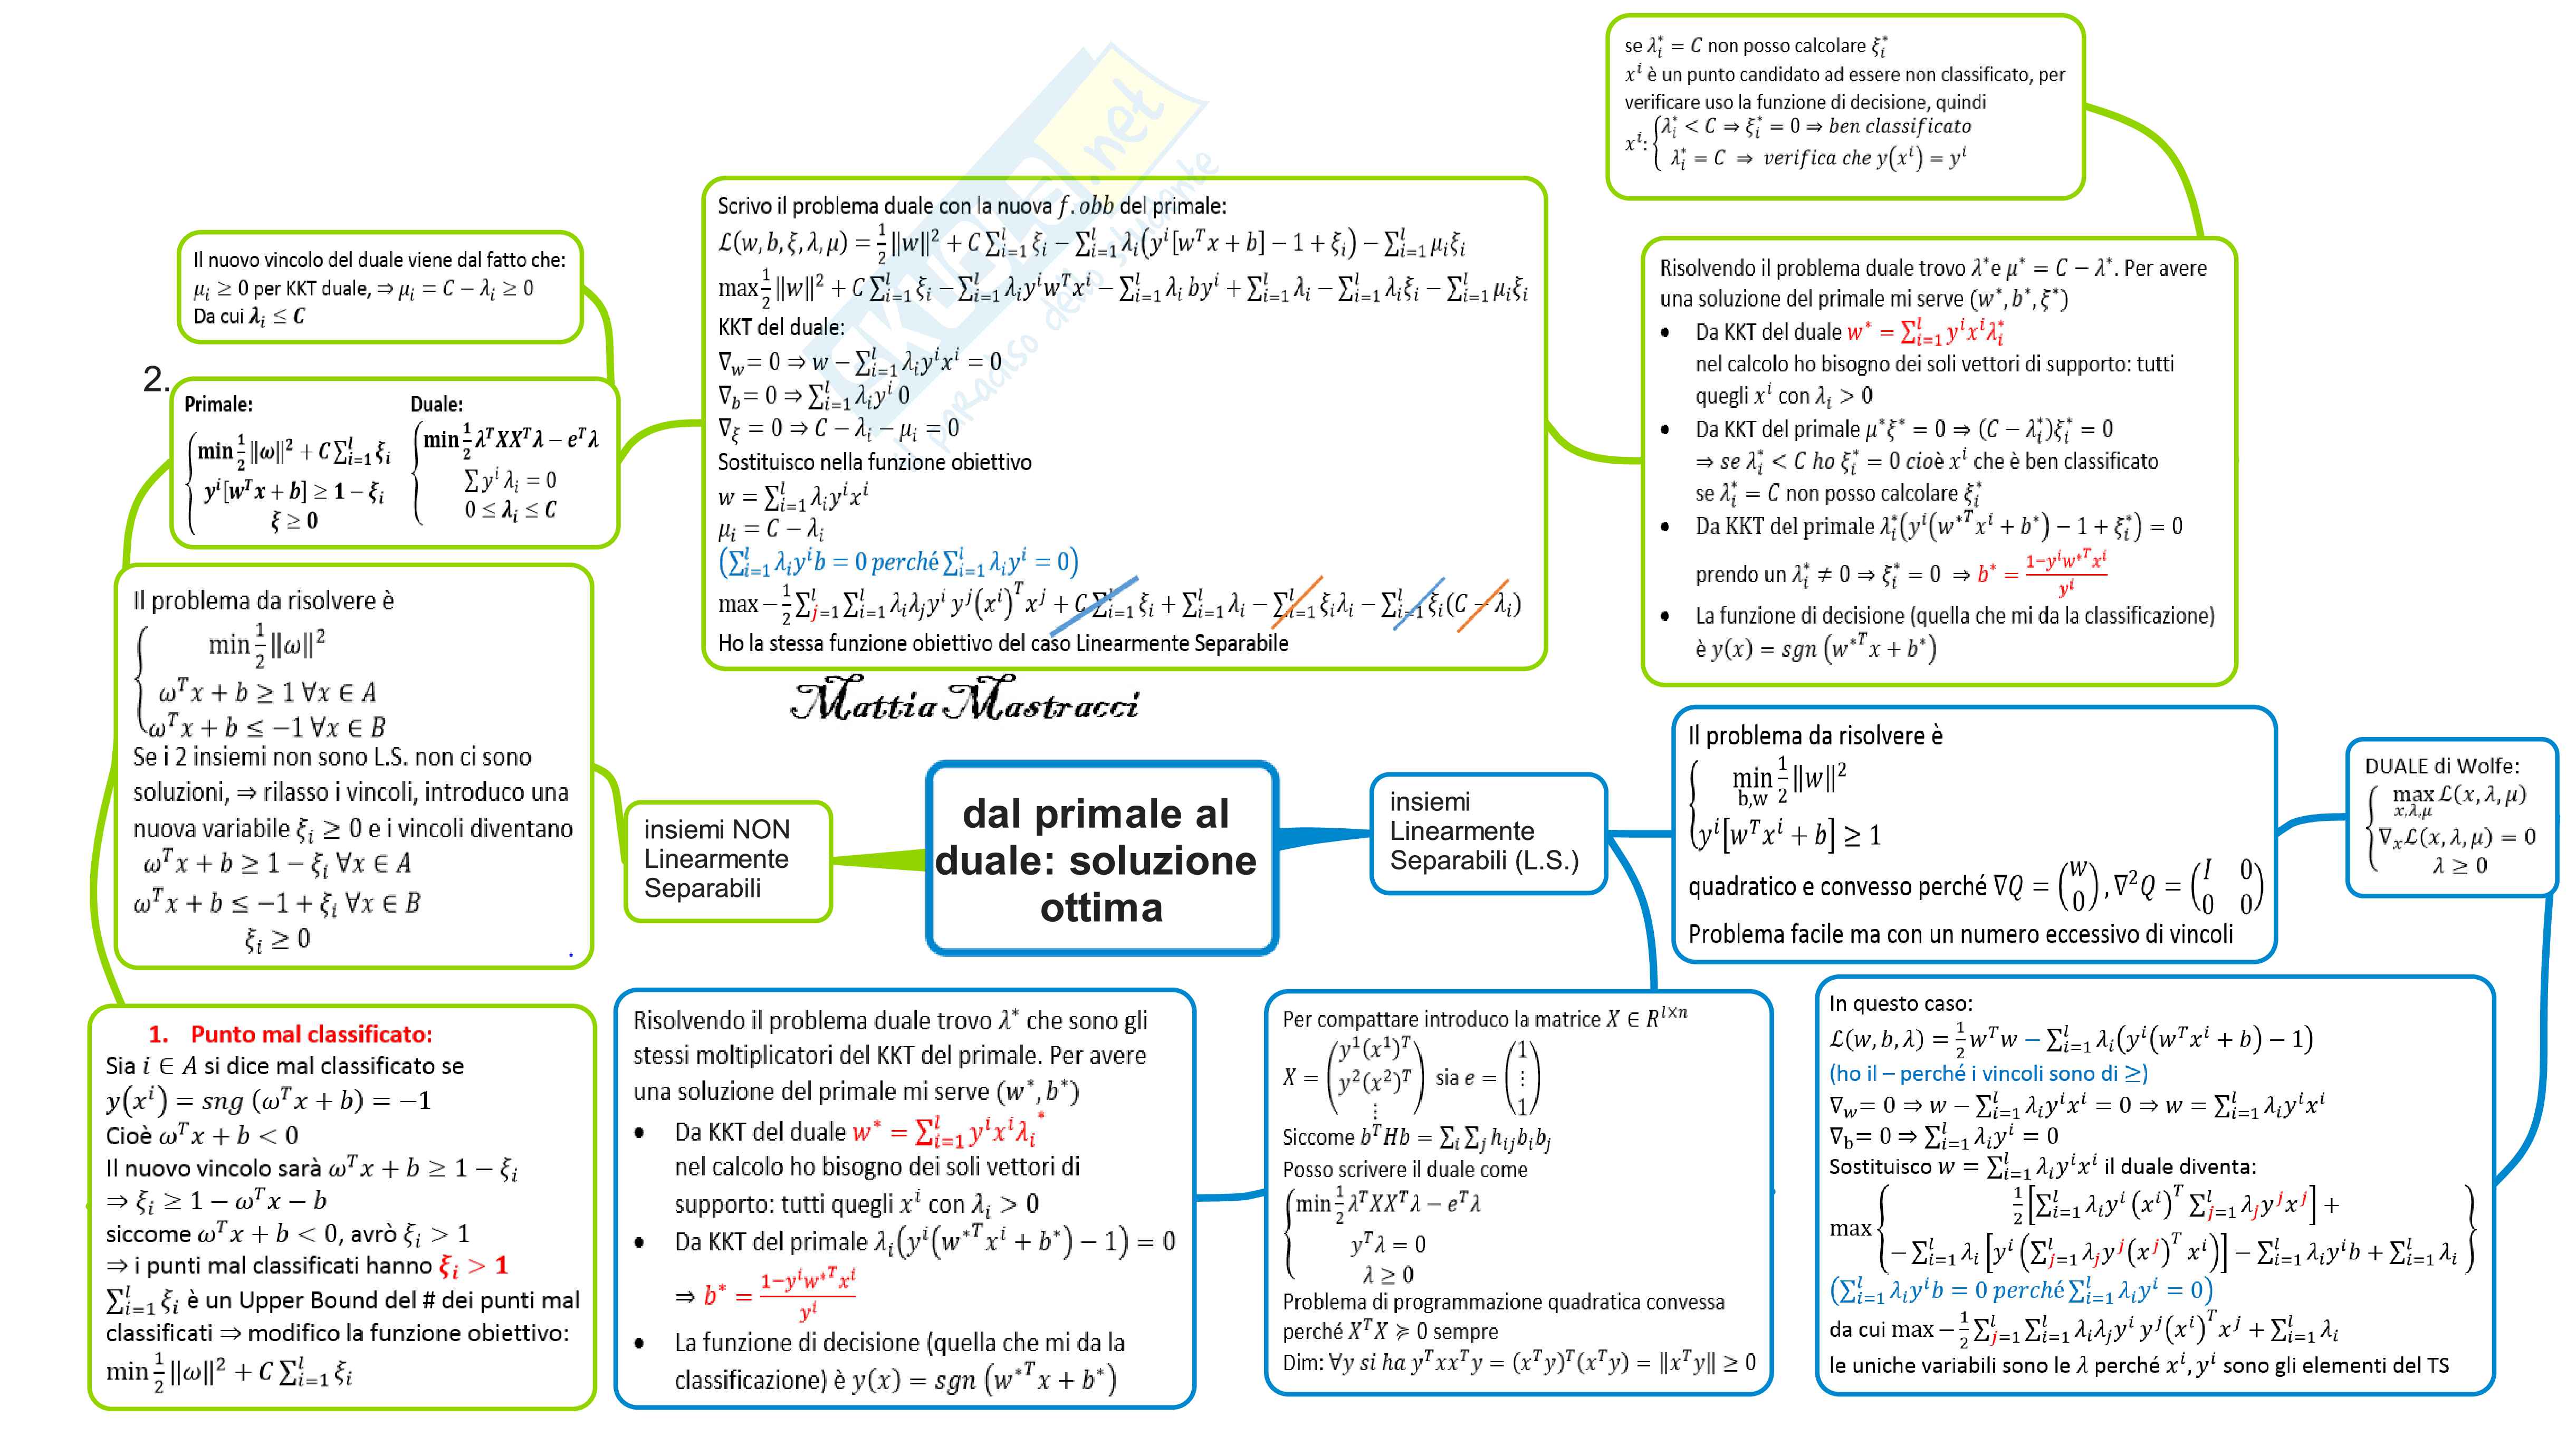 se λᵢ* = C non posso calcolare ξᵢ*
xⁱ è un punto candidato ad essere non classificato, per
verificare uso la funzione di decisione, quindi
xⁱ: { λᵢ* < C ⇒ ξᵢ* = 0 ⇒ ben classificato
λᵢ* = C ⇒ verifica che y(xⁱ) = yⁱ
Scrivo il problema duale con la nuova f.obb del primale:
ℒ(w, b, ξ, λ, μ) = ½‖w‖² + C∑ˡᵢ₌₁ ξᵢ − ∑ˡᵢ₌₁ λᵢ(yⁱ[wᵀx + b] − 1 + ξᵢ) − ∑ˡᵢ₌₁ μᵢξᵢ
max ½‖w‖² + C∑ˡᵢ₌₁ ξᵢ − ∑ˡᵢ₌₁ λᵢyⁱwᵀxⁱ − ∑ˡᵢ₌₁ λᵢ byⁱ + ∑ˡᵢ₌₁ λᵢ − ∑ˡᵢ₌₁ λᵢξᵢ − ∑ˡᵢ₌₁ μᵢξᵢ
KKT del duale:
∇w = 0 ⇒ w − ∑ˡᵢ₌₁ λᵢyⁱxⁱ = 0
∇b = 0 ⇒ ∑ˡᵢ₌₁ λᵢyⁱ 0
∇ξ = 0 ⇒ C − λᵢ − μᵢ = 0
Sostituisco nella funzione obiettivo
w = ∑ˡᵢ₌₁ λᵢyⁱxⁱ
μᵢ = C − λᵢ
(∑ˡᵢ₌₁ λᵢyⁱb = 0 perché ∑ˡᵢ₌₁ λᵢyⁱ = 0)
max −½∑ˡⱼ₌₁ ∑ˡᵢ₌₁ λᵢλⱼyⁱ yʲ(xⁱ)ᵀxʲ + C∑ˡᵢ₌₁ ξᵢ + ∑ˡᵢ₌₁ λᵢ − ∑ˡᵢ₌₁ ξᵢλᵢ − ∑ˡᵢ₌₁ ξᵢ(C − λᵢ)
Ho la stessa funzione obiettivo del caso Linearmente Separabile
SKUOLA.net
il paradiso dello studente
Il nuovo vincolo del duale viene dal fatto che:
μᵢ ≥ 0 per KKT duale, ⇒ μᵢ = C − λᵢ ≥ 0
Da cui λᵢ ≤ C
2.
Primale: Duale:
min ½‖ω‖² + C∑ˡᵢ₌₁ ξᵢ min ½λᵀXXᵀλ − eᵀλ
yⁱ[wᵀx + b] ≥ 1 − ξᵢ ∑ yⁱ λᵢ = 0
ξ ≥ 0 0 ≤ λᵢ ≤ C
Risolvendo il problema duale trovo λ*e μ* = C − λ*. Per avere
una soluzione del primale mi serve (w*, b*, ξ*)
• Da KKT del duale w* = ∑ˡᵢ₌₁ yⁱxⁱλᵢ*
nel calcolo ho bisogno dei soli vettori di supporto: tutti
quegli xⁱ con λᵢ > 0
• Da KKT del primale μ*ξ* = 0 ⇒ (C − λᵢ*)ξᵢ* = 0
⇒ se λᵢ* < C ho ξᵢ* = 0 cioè xⁱ che è ben classificato
se λᵢ* = C non posso calcolare ξᵢ*
• Da KKT del primale λᵢ*(yⁱ(w*ᵀxⁱ + b*) − 1 + ξᵢ*) = 0
prendo un λᵢ* ≠ 0 ⇒ ξᵢ* = 0 ⇒ b* = (1−yⁱw*ᵀxⁱ)/yⁱ
• La funzione di decisione (quella che mi da la classificazione)
è y(x) = sgn (w*ᵀx + b*)
Il problema da risolvere è
min ½‖ω‖²
ωᵀx + b ≥ 1 ∀x ∈ A
ωᵀx + b ≤ −1 ∀x ∈ B
Se i 2 insiemi non sono L.S. non ci sono
soluzioni, ⇒ rilasso i vincoli, introduco una
nuova variabile ξᵢ ≥ 0 e i vincoli diventano
ωᵀx + b ≥ 1 − ξᵢ ∀x ∈ A
ωᵀx + b ≤ −1 + ξᵢ ∀x ∈ B
ξᵢ ≥ 0
Mattia Mastracci
insiemi NON
Linearmente
Separabili
dal primale al
duale: soluzione
ottima
insiemi
Linearmente
Separabili (L.S.)
Il problema da risolvere è
min b,w ½‖w‖²
yⁱ[wᵀxⁱ + b] ≥ 1
quadratico e convesso perché ∇Q = (w 0), ∇²Q = (I 0 0 0)
Problema facile ma con un numero eccessivo di vincoli
DUALE di Wolfe:
max x,λ,μ ℒ(x, λ, μ)
∇ₓℒ(x, λ, μ) = 0
λ ≥ 0
1. Punto mal classificato:
Sia i ∈ A si dice mal classificato se
y(xⁱ) = sng (ωᵀx + b) = −1
Cioè ωᵀx + b < 0
Il nuovo vincolo sarà ωᵀx + b ≥ 1 − ξᵢ
⇒ ξᵢ ≥ 1 − ωᵀx − b
siccome ωᵀx + b < 0, avrò ξᵢ > 1
⇒ i punti mal classificati hanno ξᵢ > 1
∑ˡᵢ₌₁ ξᵢ è un Upper Bound del # dei punti mal
classificati ⇒ modifico la funzione obiettivo:
min ½‖ω‖² + C ∑ˡᵢ₌₁ ξᵢ
Risolvendo il problema duale trovo λ* che sono gli
stessi moltiplicatori del KKT del primale. Per avere
una soluzione del primale mi serve (w*, b*)
• Da KKT del duale w* = ∑ˡᵢ₌₁ yⁱxⁱλᵢ*
nel calcolo ho bisogno dei soli vettori di
supporto: tutti quegli xⁱ con λᵢ > 0
• Da KKT del primale λᵢ(yⁱ(w*ᵀxⁱ + b*) − 1) = 0
⇒ b* = (1−yⁱw*ᵀxⁱ)/yⁱ
• La funzione di decisione (quella che mi da la
classificazione) è y(x) = sgn (w*ᵀx + b*)
Per compattare introduco la matrice X ∈ Rˡˣⁿ
X = (y¹(x¹)ᵀ y²(x²)ᵀ ⋮) sia e = (1 ⋮ 1)
Siccome bᵀHb = ∑ᵢ ∑ⱼ hᵢⱼbᵢbⱼ
Posso scrivere il duale come
min ½λᵀXXᵀλ − eᵀλ
yᵀλ = 0
λ ≥ 0
Problema di programmazione quadratica convessa
perché XᵀX ≽ 0 sempre
Dim: ∀y si ha yᵀxxᵀy = (xᵀy)ᵀ(xᵀy) = ‖xᵀy‖ ≥ 0
In questo caso:
ℒ(w, b, λ) = ½wᵀw − ∑ˡᵢ₌₁ λᵢ(yⁱ(wᵀxⁱ + b) − 1)
(ho il – perché i vincoli sono di ≥)
∇w = 0 ⇒ w − ∑ˡᵢ₌₁ λᵢyⁱxⁱ = 0 ⇒ w = ∑ˡᵢ₌₁ λᵢyⁱxⁱ
∇b = 0 ⇒ ∑ˡᵢ₌₁ λᵢyⁱ = 0
Sostituisco w = ∑ˡᵢ₌₁ λᵢyⁱxⁱ il duale diventa:
max { ½[∑ˡᵢ₌₁ λᵢyⁱ (xⁱ)ᵀ ∑ˡⱼ₌₁ λⱼyʲxʲ] +
− ∑ˡᵢ₌₁ λᵢ [yⁱ (∑ˡⱼ₌₁ λⱼyʲ(xʲ)ᵀ xⁱ)] − ∑ˡᵢ₌₁ λᵢyⁱb + ∑ˡᵢ₌₁ λᵢ }
(∑ˡᵢ₌₁ λᵢyⁱb = 0 perché ∑ˡᵢ₌₁ λᵢyⁱ = 0)
da cui max −½∑ˡⱼ₌₁ ∑ˡᵢ₌₁ λᵢλⱼyⁱ yʲ(xⁱ)ᵀxʲ + ∑ˡᵢ₌₁ λᵢ
le uniche variabili sono le λ perché xⁱ, yⁱ sono gli elementi del TS